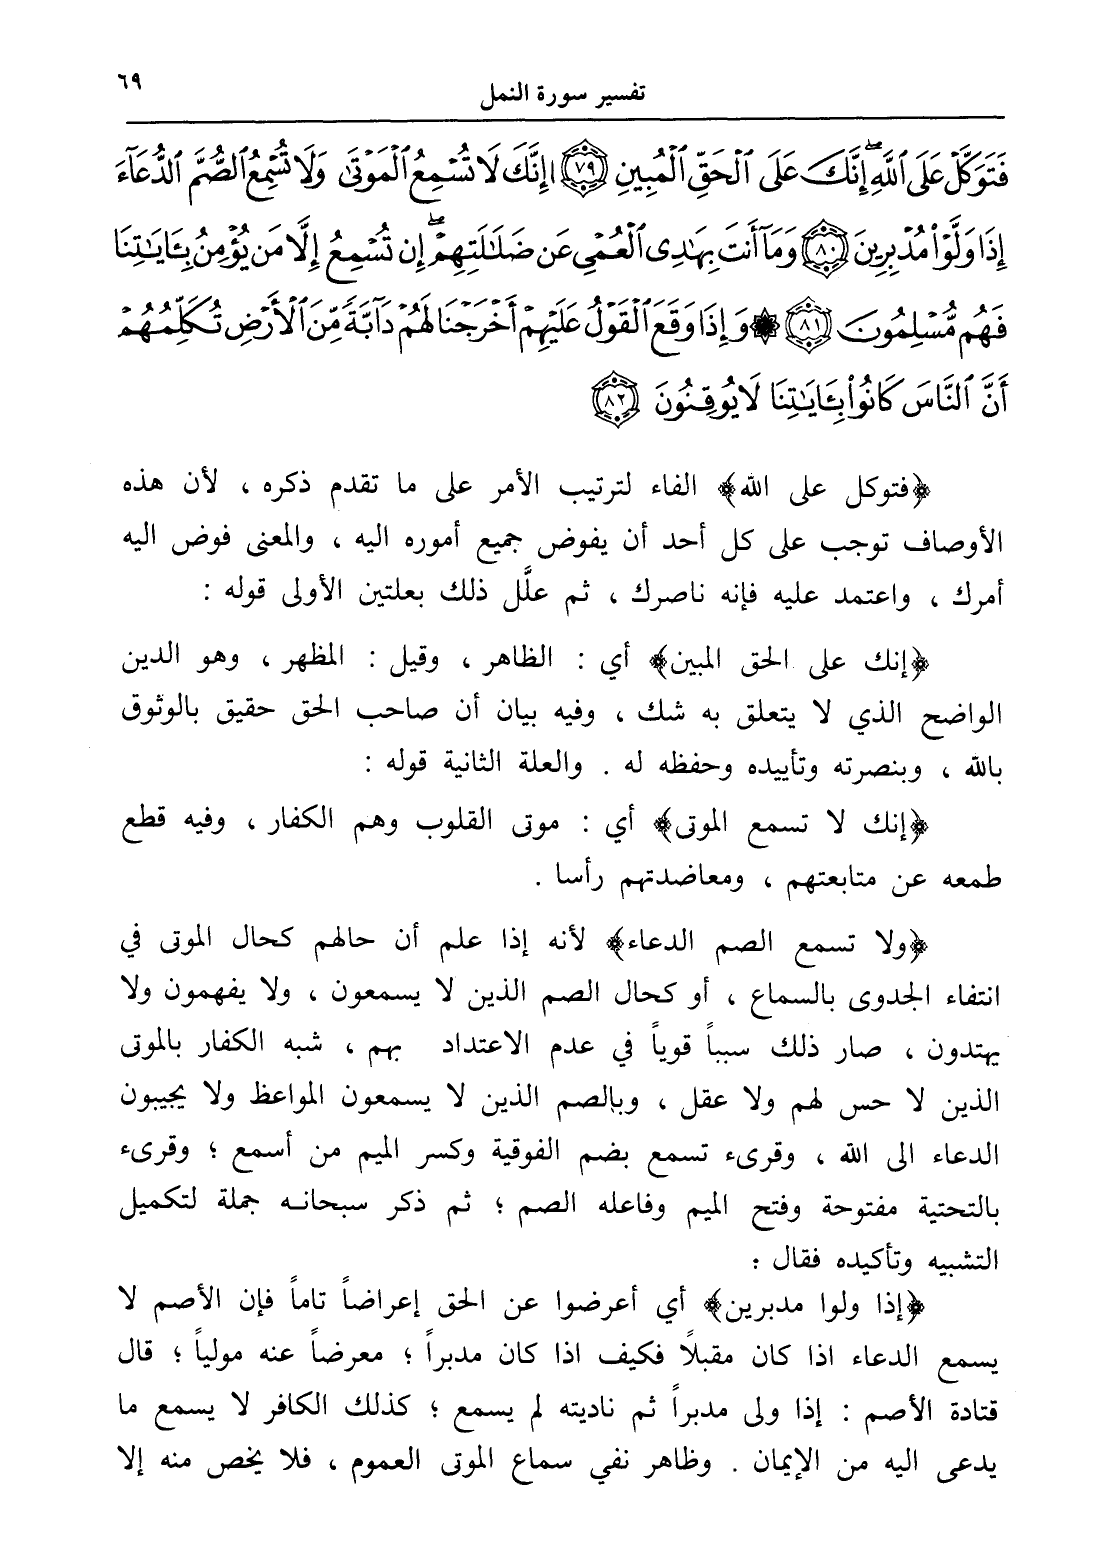 ٦٩
تفسير سورة النمل
فَتَوَكَّلْ عَلَى ٱللَّهِ ۖ إِنَّكَ عَلَى ٱلْحَقِّ ٱلْمُبِينِ ٧٩ إِنَّكَ لَا تُسْمِعُ ٱلْمَوْتَىٰ وَلَا تُسْمِعُ ٱلصُّمَّ ٱلدُّعَآءَ
إِذَا وَلَّوْا۟ مُدْبِرِينَ ٨٠ وَمَآ أَنتَ بِهَـٰدِى ٱلْعُمْىِ عَن ضَلَـٰلَتِهِمْ ۖ إِن تُسْمِعُ إِلَّا مَن يُؤْمِنُ بِـَٔايَـٰتِنَا
فَهُم مُّسْلِمُونَ ٨١ ۞ وَإِذَا وَقَعَ ٱلْقَوْلُ عَلَيْهِمْ أَخْرَجْنَا لَهُمْ دَآبَّةً مِّنَ ٱلْأَرْضِ تُكَلِّمُهُمْ
أَنَّ ٱلنَّاسَ كَانُوا۟ بِـَٔايَـٰتِنَا لَا يُوقِنُونَ ٨٢
﴿فتوكل على الله﴾ الفاء لترتيب الأمر على ما تقدم ذكره ، لأن هذه
الأوصاف توجب على كل أحد أن يفوض جميع أموره اليه ، والمعنى فوض اليه
أمرك ، واعتمد عليه فإنه ناصرك ، ثم علَّل ذلك بعلتين الأولى قوله :
﴿إنك على الحق المبين﴾ أي : الظاهر ، وقيل : المظهر ، وهو الدين
الواضح الذي لا يتعلق به شك ، وفيه بيان أن صاحب الحق حقيق بالوثوق
بالله ، وبنصرته وتأييده وحفظه له . والعلة الثانية قوله :
﴿إنك لا تسمع الموتى﴾ أي : موتى القلوب وهم الكفار ، وفيه قطع
طمعه عن متابعتهم ، ومعاضدتهم رأسا .
﴿ولا تسمع الصم الدعاء﴾ لأنه إذا علم أن حالهم كحال الموتى في
انتفاء الجدوى بالسماع ، أو كحال الصم الذين لا يسمعون ، ولا يفهمون ولا
يهتدون ، صار ذلك سبباً قوياً في عدم الاعتداد بهم ، شبه الكفار بالموتى
الذين لا حس لهم ولا عقل ، وبالصم الذين لا يسمعون المواعظ ولا يجيبون
الدعاء الى الله ، وقرىء تسمع بضم الفوقية وكسر الميم من أسمع ؛ وقرىء
بالتحتية مفتوحة وفتح الميم وفاعله الصم ؛ ثم ذكر سبحانه جملة لتكميل
التشبيه وتأكيده فقال :
﴿إذا ولوا مدبرين﴾ أي أعرضوا عن الحق إعراضاً تاماً فإن الأصم لا
يسمع الدعاء اذا كان مقبلاً فكيف اذا كان مدبراً ؛ معرضاً عنه مولياً ؛ قال
قتادة الأصم : إذا ولى مدبراً ثم ناديته لم يسمع ؛ كذلك الكافر لا يسمع ما
يدعى اليه من الإيمان . وظاهر نفي سماع الموتى العموم ، فلا يخص منه إلا